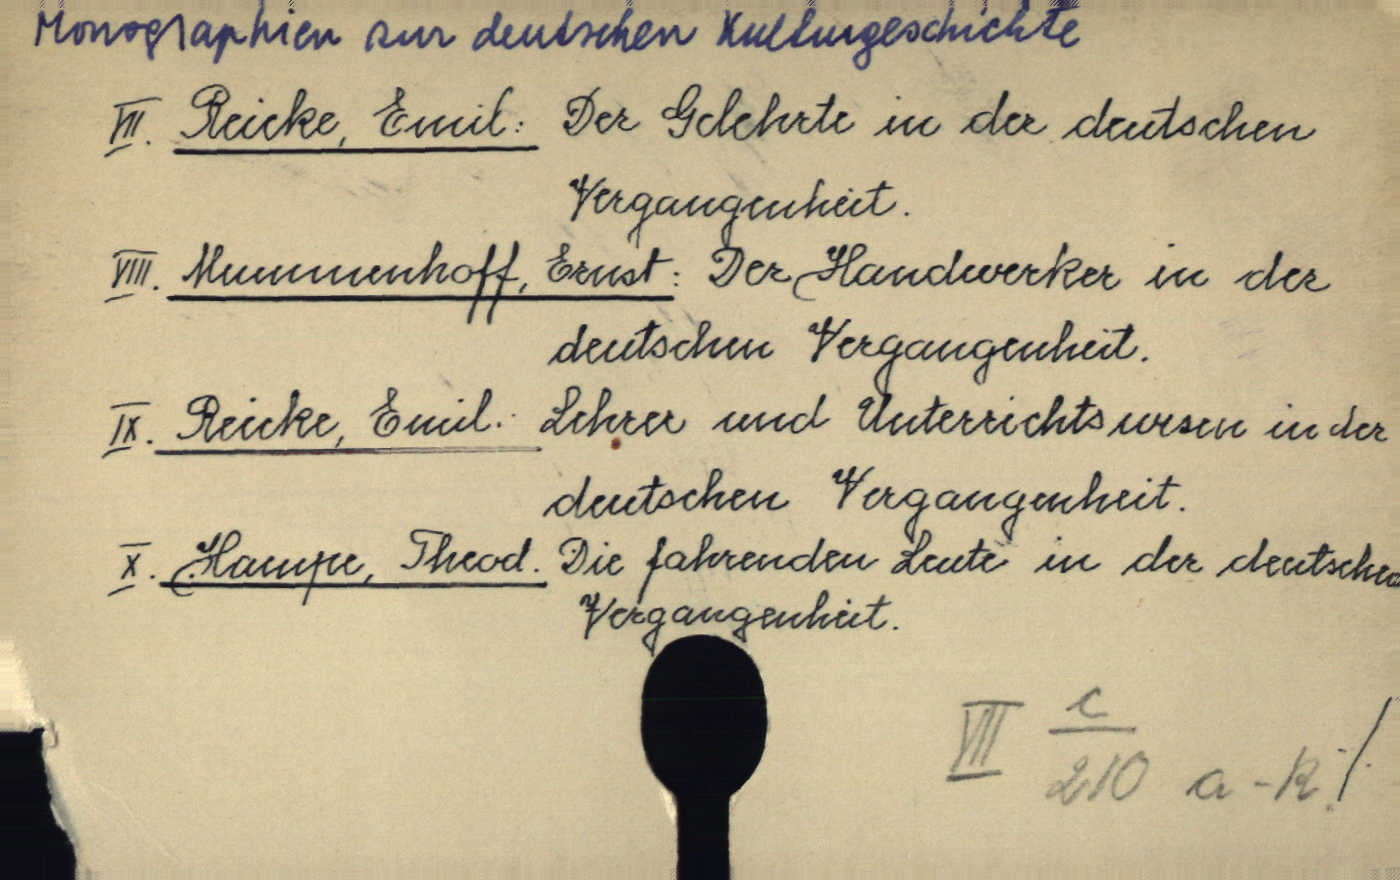 Monographien zur deutschen Kulturgeschichte
VII. Reicke, Emil: Der Gelehrte in der deutschen
Vergangenheit.
VIII. Mummenhoff, Ernst: Der Handwerker in der
deutschen Vergangenheit.
IX. Reicke, Emil: Lehrer und Unterrichtswesen in der
deutschen Vergangenheit.
X. Hampe, Theod. Die fahrenden Leute in der deutschen
Vergangenheit.
VII c
210 a-k. ./.